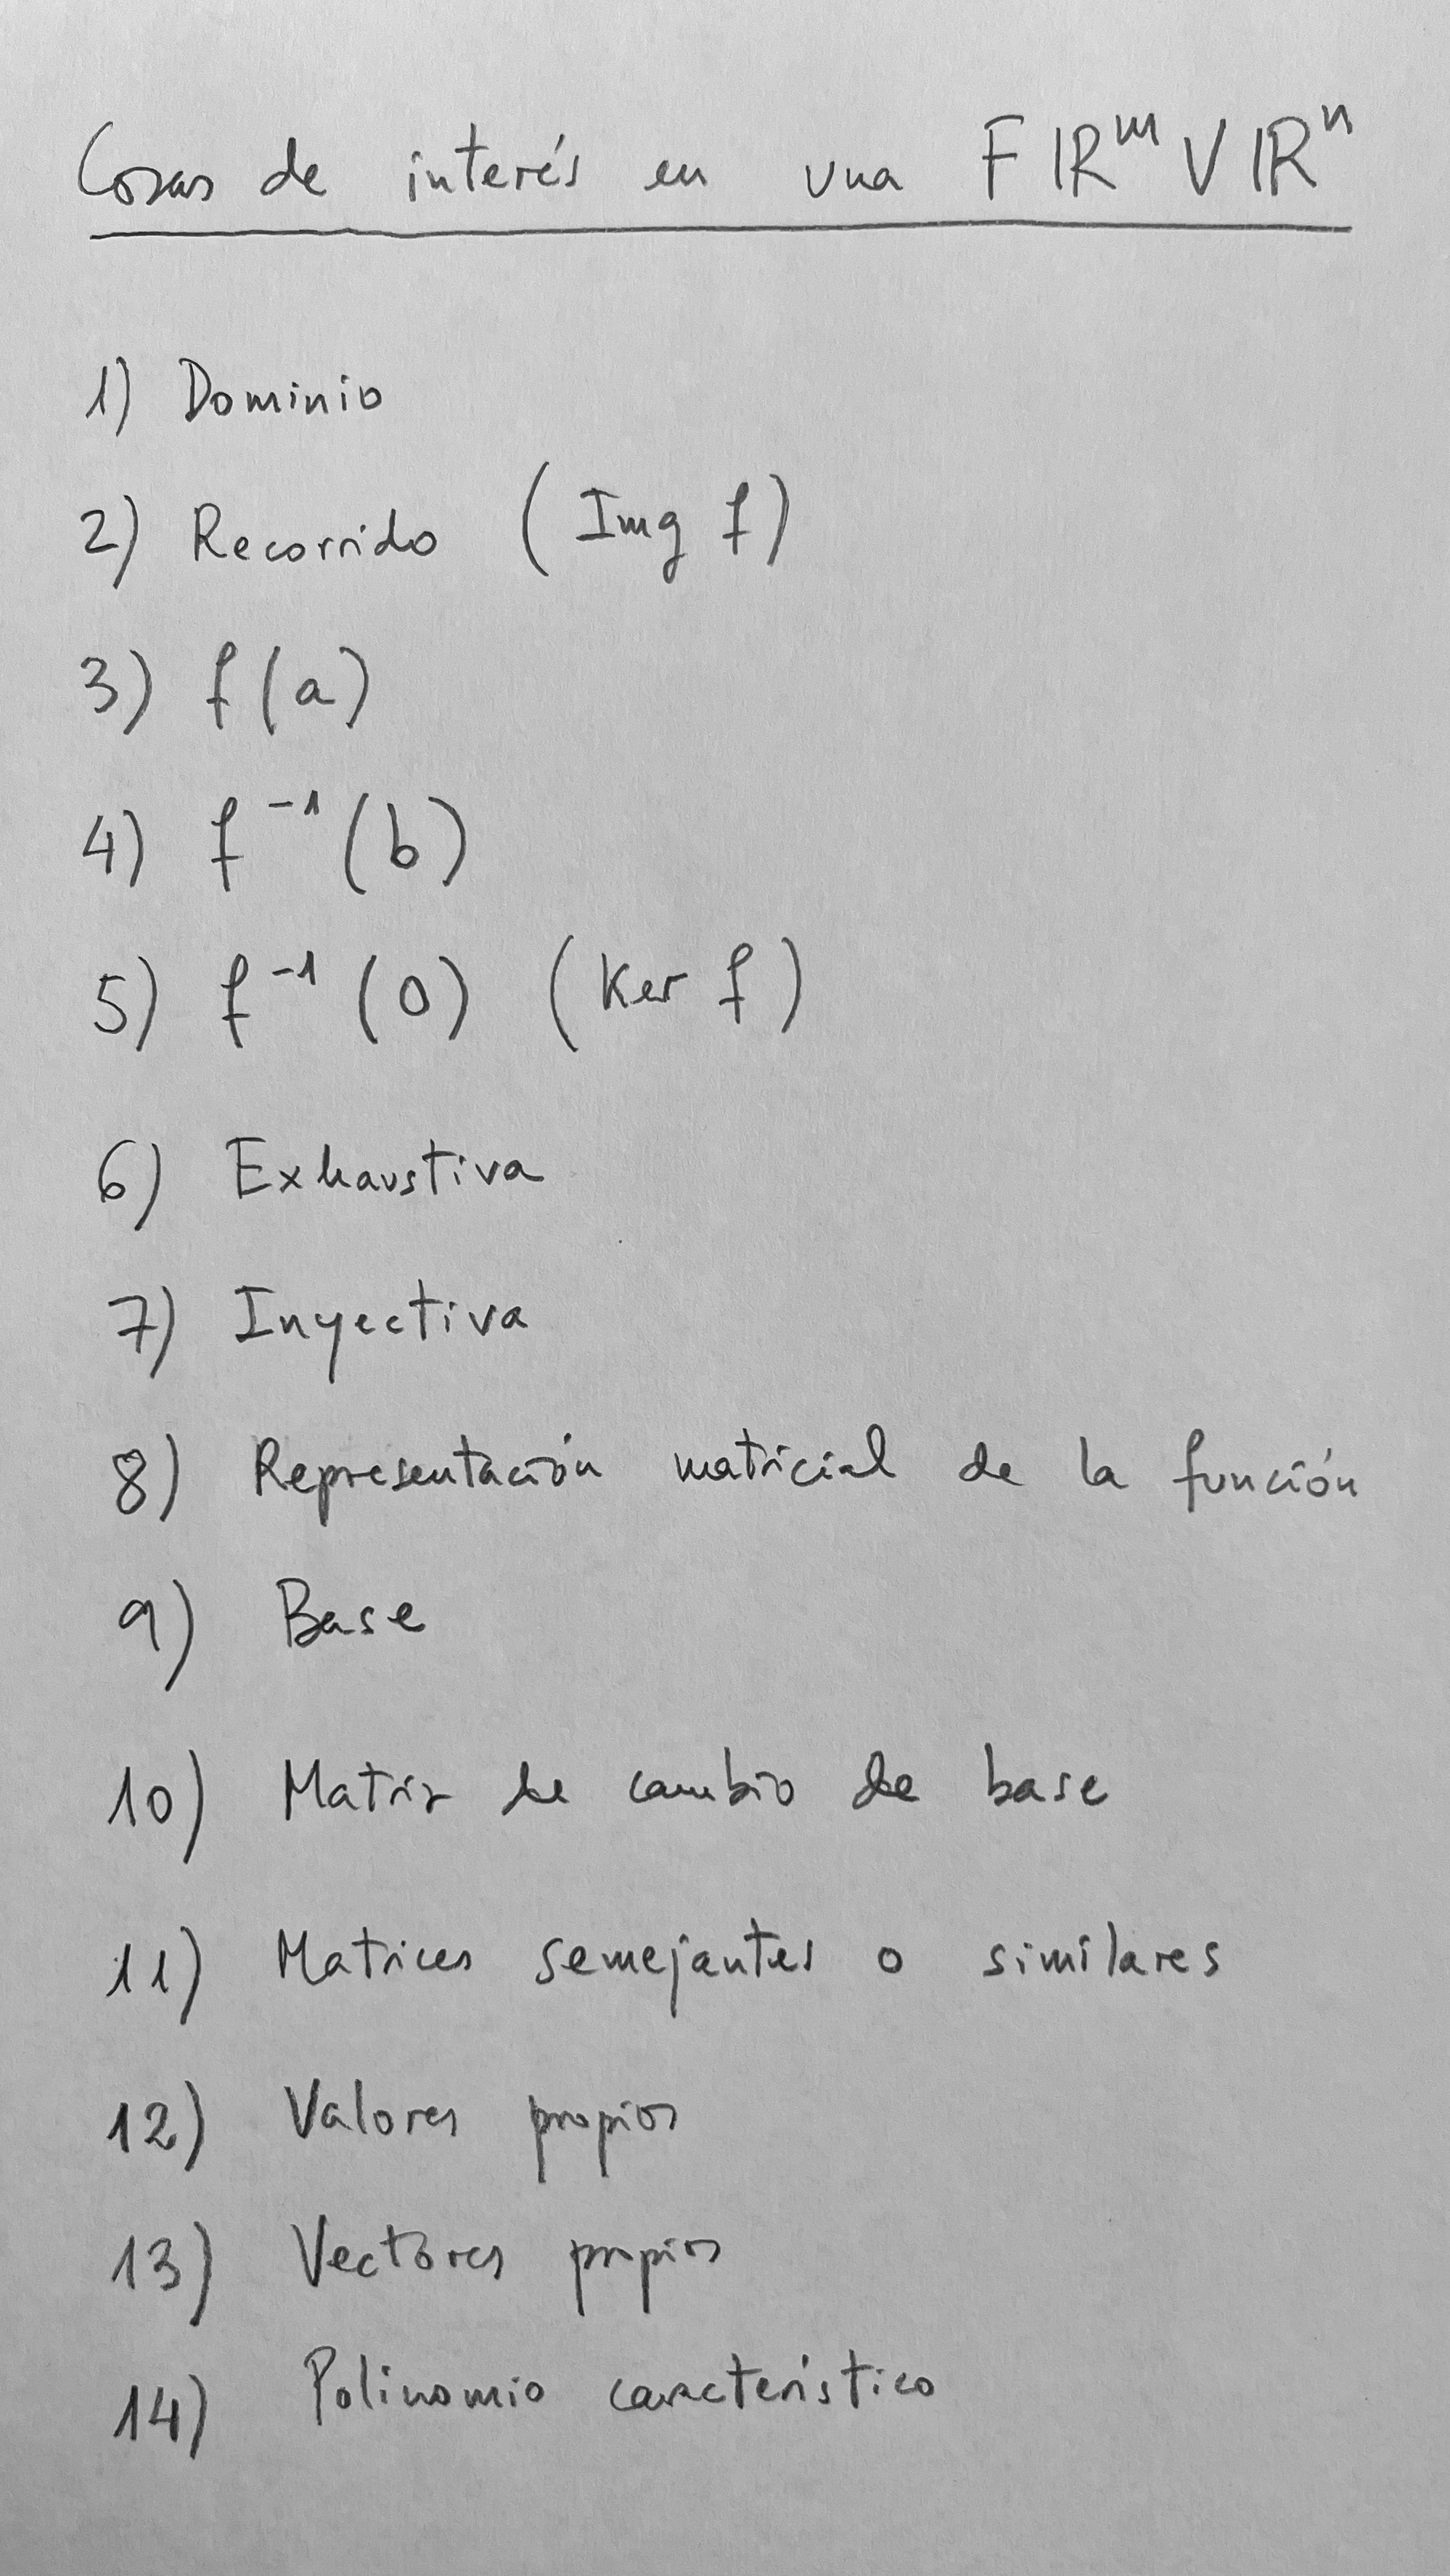 Cosas de interés en una F ℝᵐ V ℝⁿ
1) Dominio
2) Recorrido (Img f)
3) f(a)
4) f⁻¹(b)
5) f⁻¹(0) (Ker f)
6) Exhaustiva
7) Inyectiva
8) Representación matricial de la función
9) Base
10) Matriz de cambio de base
11) Matrices semejantes o similares
12) Valores propios
13) Vectores propios
14) Polinomio característico